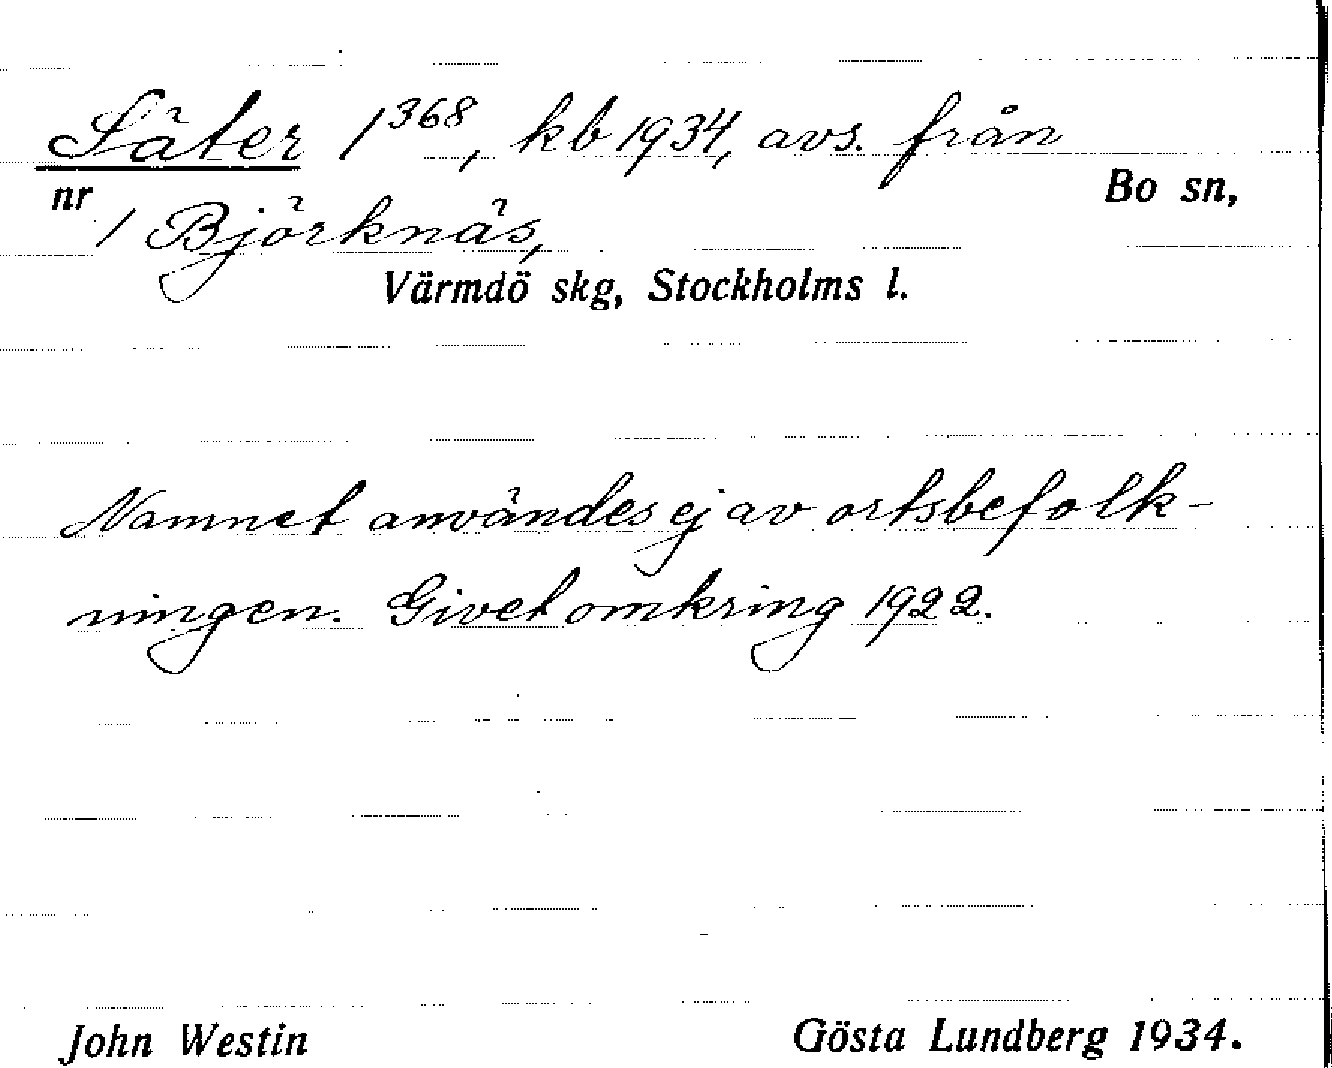 Säter 1368, kb 1934, avs. från
Bo sn,
nr 1 Björknäs,
Värmdö skg, Stockholms l.
Namnet användes ej av ortsbefolk-
ningen. Givet omkring 1922.
John Westin Gösta Lundberg 1934.